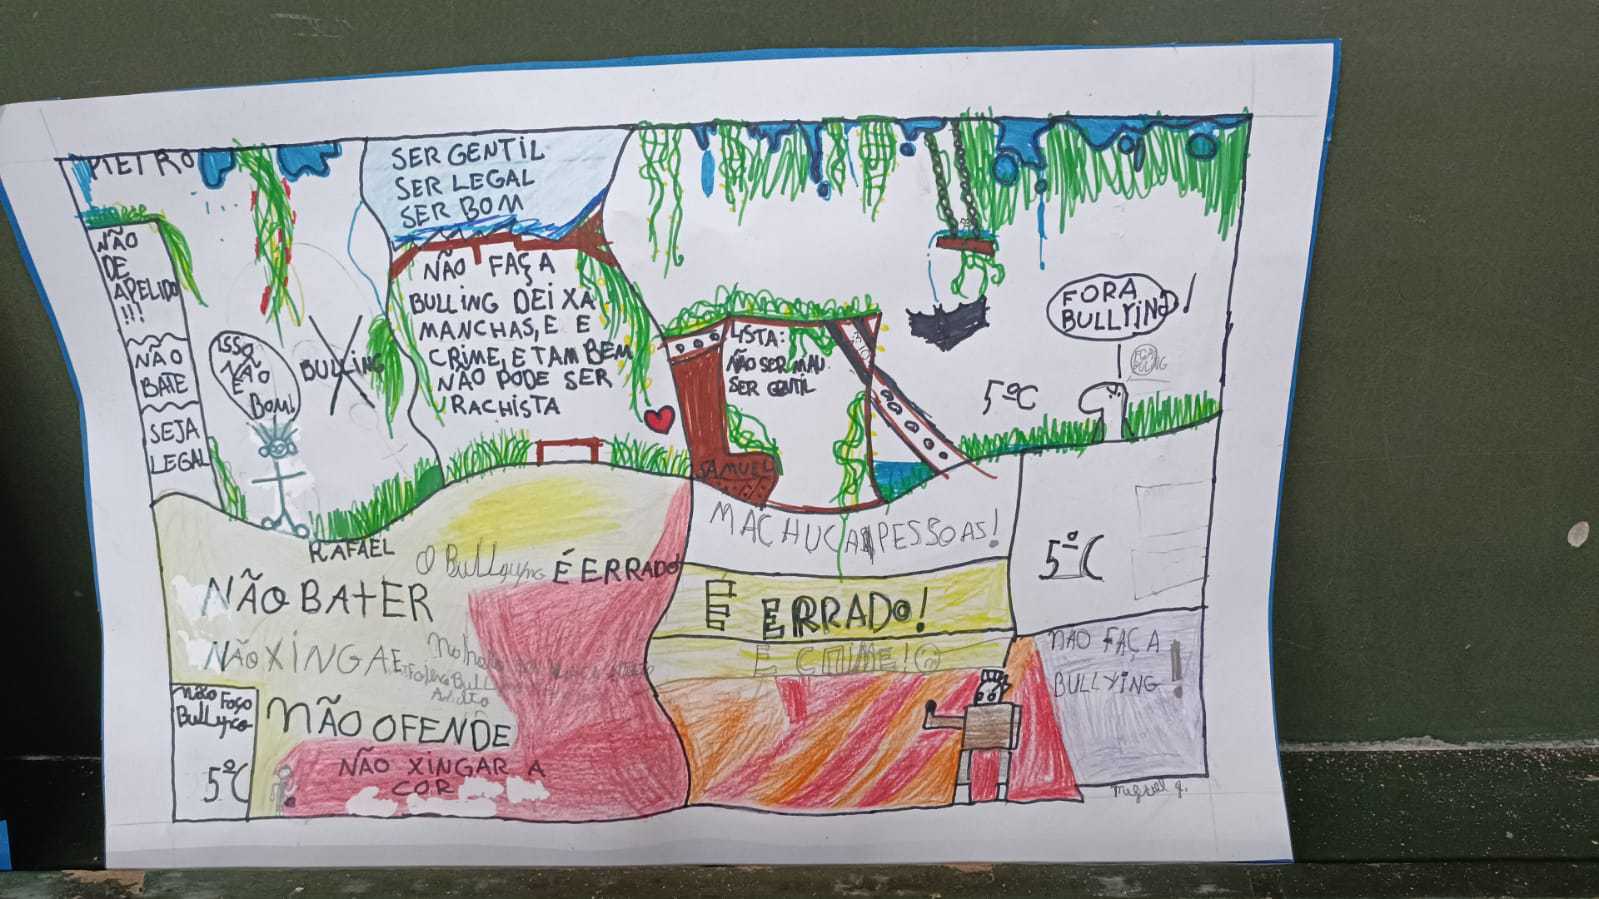 PIETRO
NÃO
DE
APELIDO
!!!
NÃO
BATE
SEJA
LEGAL
ISSO
NÃO
É
BOM!
BULLING
SER GENTIL
SER LEGAL
SER BOM
NÃO FAÇA
BULLING DEIXA
MANCHAS, E E
CRIME, E TAMBEM
NÃO PODE SER
RACHISTA
LISTA:
NÃO SER MAU
SER GENTIL
SAMUEL
FORA
BULLYING!
5ºC
RAFAEL
O Bullyung É ERRADO
NÃO BATER
NÃO XINGAR
NÃO OFENDE
NÃO XINGAR A
COR
não Faço
Bullyco
5ºC
MACHUCA PESSOAS!
É ERRADO!
É CRIME!
5ºC
NÃO FAÇA
BULLYING!
Miguel g.